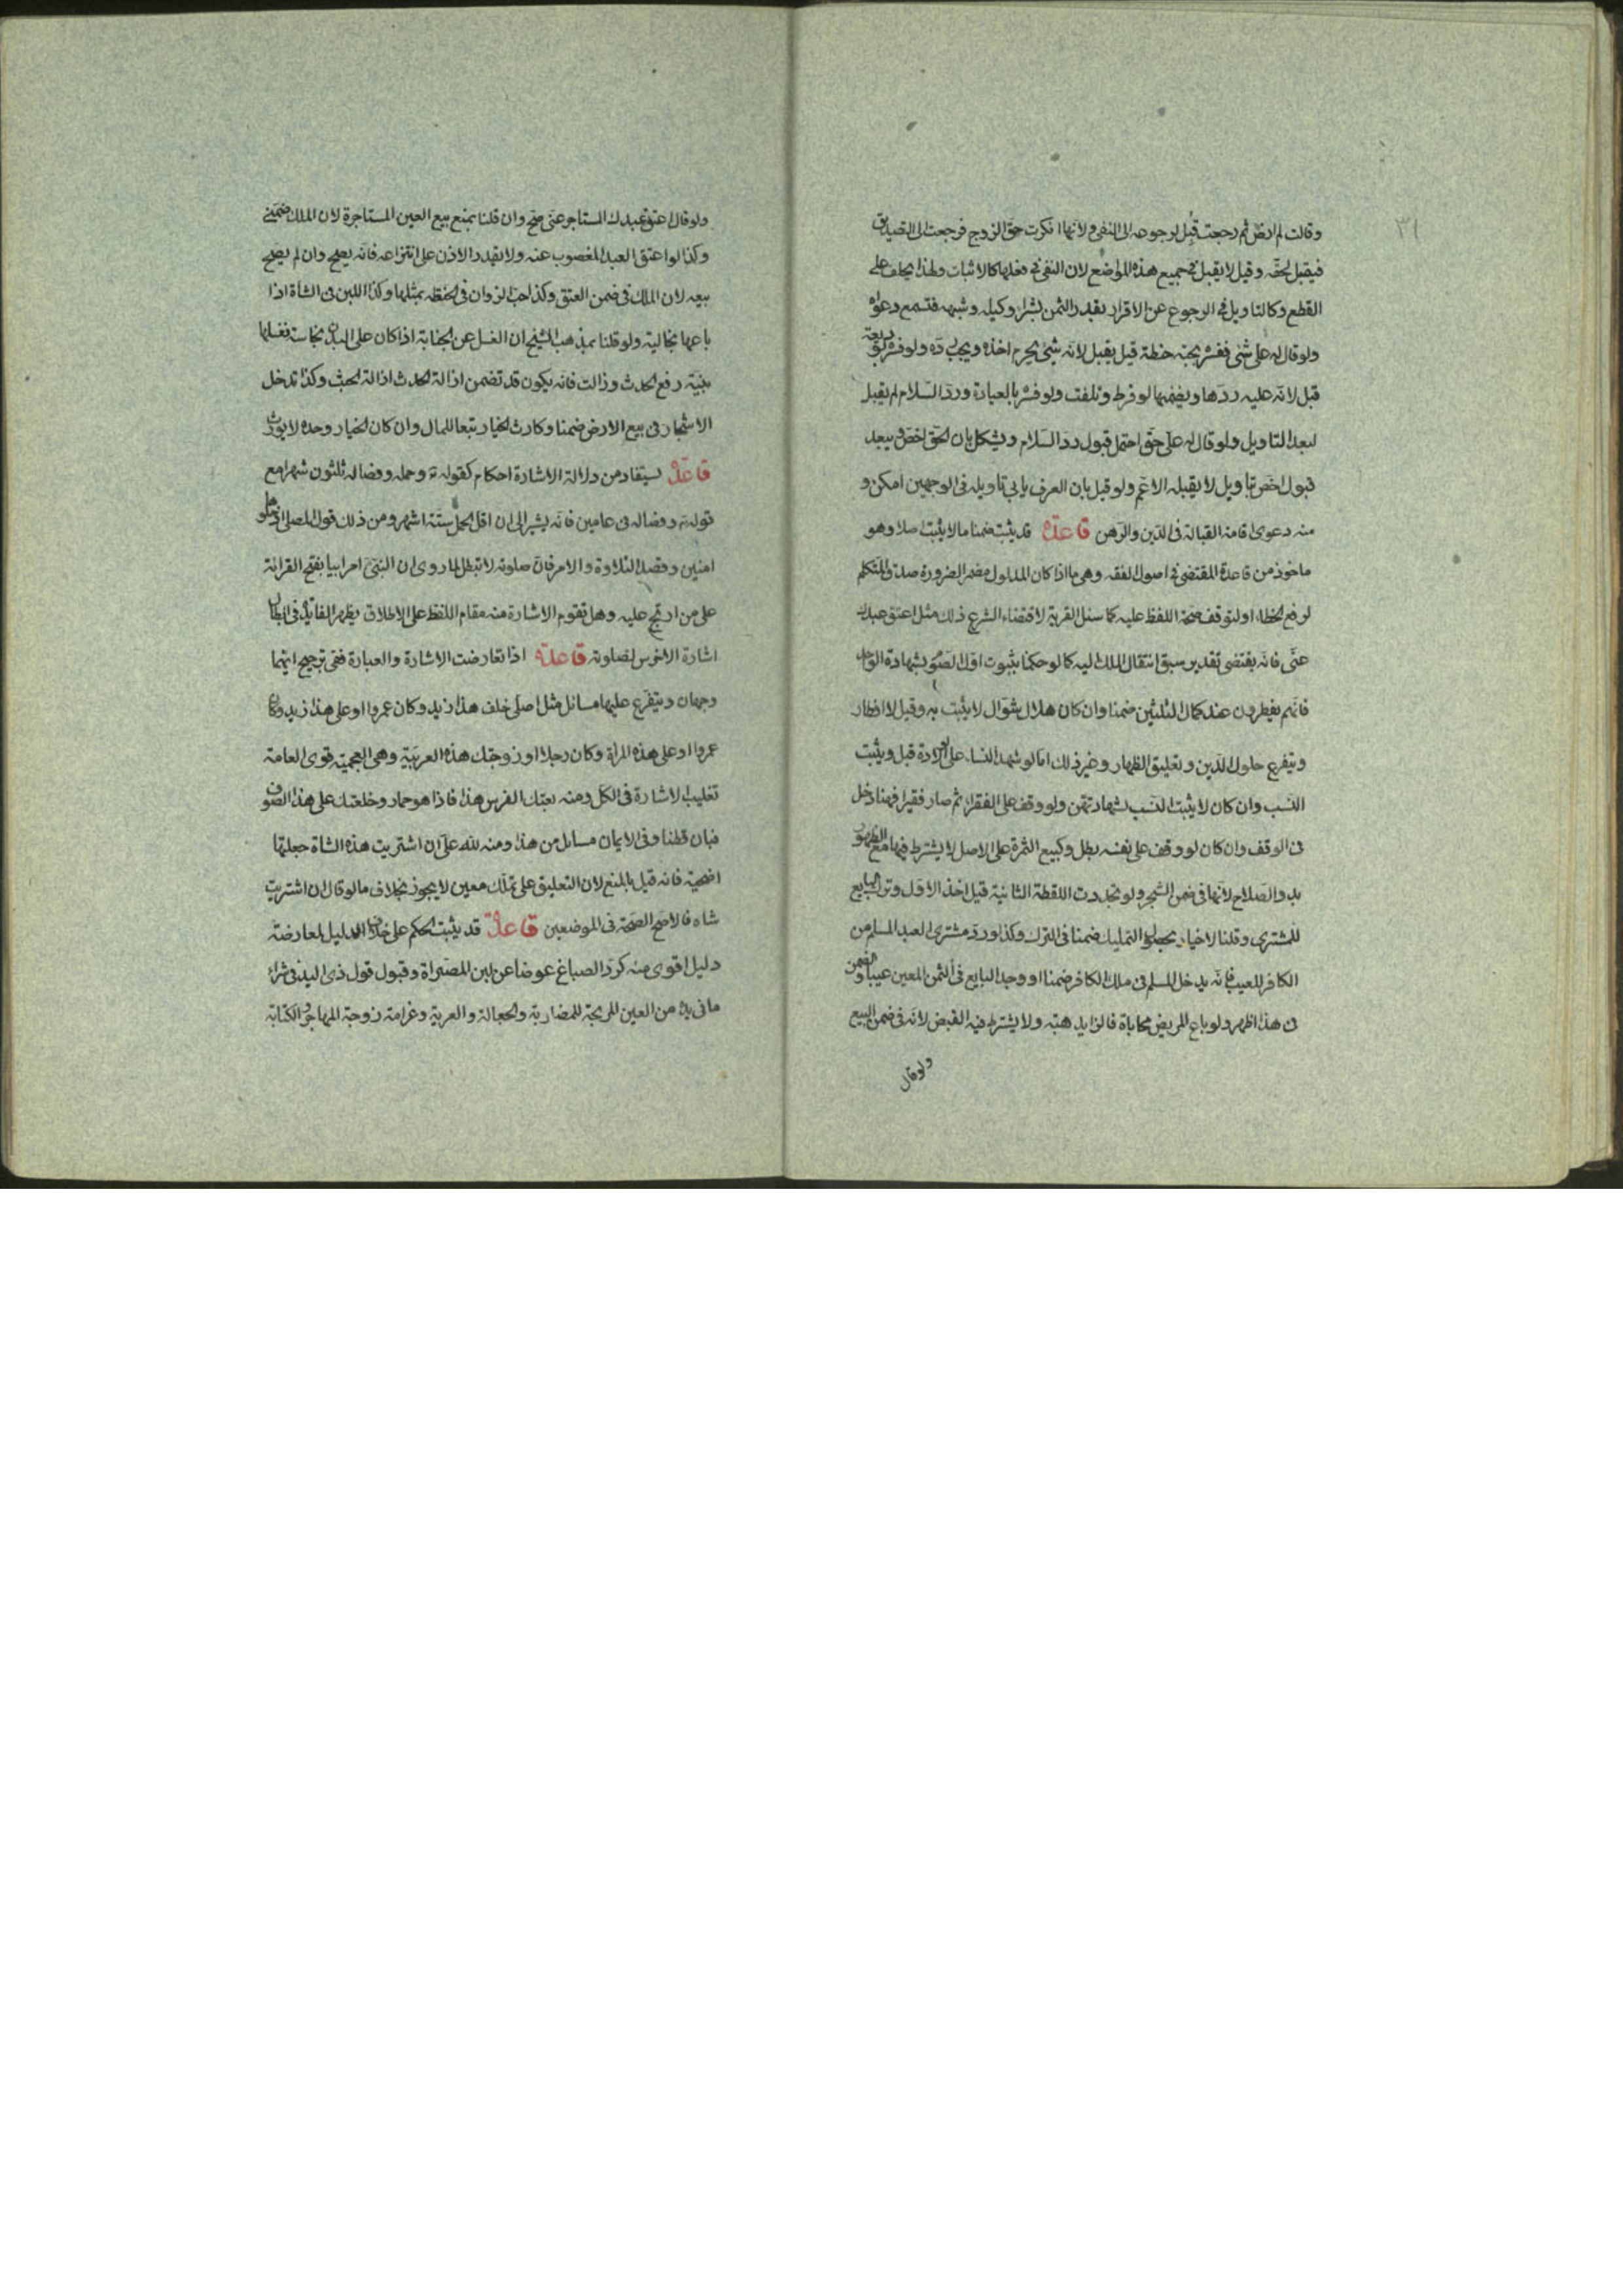 ٣١
وقالت لم ارض ثم رجعت قبل لرجوعه الى النفى ولانها انكرت حق الزوج فرجعت الى التصديق
فيقبل لحقه وقيل لا يقبل فى جميع هذه المواضع لان النفى فى فعلها كالاثبات ولهذا يحلف على
القطع وكالتاويل فى الرجوع عن الاقرار بقدر الثمن بشراء وكيله وشبهه فتسمع دعواه
ولو قال له على شئ ففسره بحبة حنطة قيل يقبل لانه شئ يحرم اخذه ويجب رده ولو فسره بوديعة
قبل لانه عليه ردها ويضمنها لو فرط وتلفت ولو فسره بالعيادة ورد السلام لم يقبل
لبعد التاويل ولو قال له على حق احتمل قبول رد السلام ويشكل بان الحق اخص فيبعد
قبول اخص بتاويل لا يقبله الاعم ولو قيل بان العرف يابى تاويله فى الوجهين امكن و
منه دعوى اقامة القبالة فى الدين والرهن قاعدة قد يثبت ضمنا ما لا يثبت اصلا وهو
ماخوذ من قاعدة المقتضى فى اصول الفقه وهى ما اذا كان المدلول مضمرا لضرورة صدق المتكلم
كرفع الخطاء او لتوقف صحة اللفظ عليه كاسئل القرية لاقتضاء الشرع ذلك مثل اعتق عبدك
عنى فانه يقتضى تقدير سبق انتقال الملك اليه كما لو حكمنا بثبوت اول الصوم بشهادة الواحد
فانهم يفطرون عند كمال الثلثين ضمنا وان كان هلال شوال لا يثبت به وقيل لا افطار
ويتفرع حلول الدين وتعليق الظهار وغير ذلك اما لو شهد النساء على الولادة قبل ويثبت
النسب وان كان لا يثبت النسب بشهادتهن ولو وقف على الفقراء ثم صار فقيرا فهنا دخل
فى الوقف وان كان لو وقف على نفسه بطل وكبيع الثمرة على الاصل لا يشترط فيها مع الظهور
بدو الصلاح لانها فى ضمن الشجر ولو تجددت اللقطة الثانية قيل اخذ الاول وترك البايع
للمشترى وقلنا لا خيار يحصل التمليك ضمنا فى الترك وكذا لو رد مشترى العبد المسلم من
الكافر للعيب فانه يدخل المسلم فى ملك الكافر ضمنا او وجد البايع فى الثمن المعين عيبا والضمن
فى هذا اظهر ولو باع المريض محاباة فالزايد هبته ولا يشترط فيه القبض لانه فى ضمن البيع
ولو قال
ولو قال اعتق عبدك المستاجر عنى صح وان قلنا بمنع بيع العين المستاجرة لان الملك ضمنى
وكذا لو اعتق العبد المغصوب عنه ولا يقدر الاذن على انتزاعه فانه يصح وان لم يصح
بيعه لان الملك فى ضمن العتق وكذا حب الزوان فى الحنطة بمثلها وكذا اللبن فى الشاة اذا
باعها بخالية ولو قلنا بمذهب الشيخ ان الغسل عن الجنابة اذا كان على البدن نجاسة فغسلها
بنية رفع الحدث وزالت فانه يكون قد تضمن ازالة الحدث ازالة الخبث وكذا تدخل
الاشجار فى بيع الارض ضمنا وكارث الخيار تبعا للمال وان كان الخيار وحده لا يورث
قاعدة يستفاد من دلالة الاشارة احكام كقوله تع وحمله وفصاله ثلثون شهرا مع
قوله تع وفصاله فى عامين فانه يشير الى ان اقل الحمل ستة اشهر ومن ذلك قول المصلى ادخلوها
امنين وقصد التلاوة والامر فان صلوته لا تبطل لما روى ان النبى امر ابيا بفتح القراءة
على من ارتج عليه وهل تقوم الاشارة منه مقام اللفظ على الاطلاق يظهر الفائدة فى ابطال
اشارة الاخرس لصلوته قاعدة اذا تعارضت الاشارة والعبارة ففى ترجيح ايتهما
وجهان ويتفرع عليها مسائل مثل اصلى خلف هذا زيد وكان عمروا او على هذا زيد وكان
عمروا او على هذه المراة وكان رجلا او زوجتك هذه العربية وهى العجمية وقوى العامة
تغليب الاشارة فى الكل ومنه بعتك الفرس هذا فاذا هو حمار وخلعتك على هذا الصوف
فبان قطنا وفى الايمان مسائل من هذا ومنه لله على ان اشتريت هذه الشاة جعلتها
اضحية فانه قيل بالمنع لان التعليق على تملك معين لا يجوز بخلاف ما لو قال ان اشتريت
شاة فالاصح الصحة فى الموضعين قاعدة قد يثبت الحكم على خلاف الدليل لمعارضة
دليل اقوى منه كرد الصاع عوضا عن لبن المصراة وقبول قول ذى اليد فى شراء
ما فى يده من العين المربحة للمضاربة والجعالة والعرية وغرامة زوجة المهاجر والكتابة